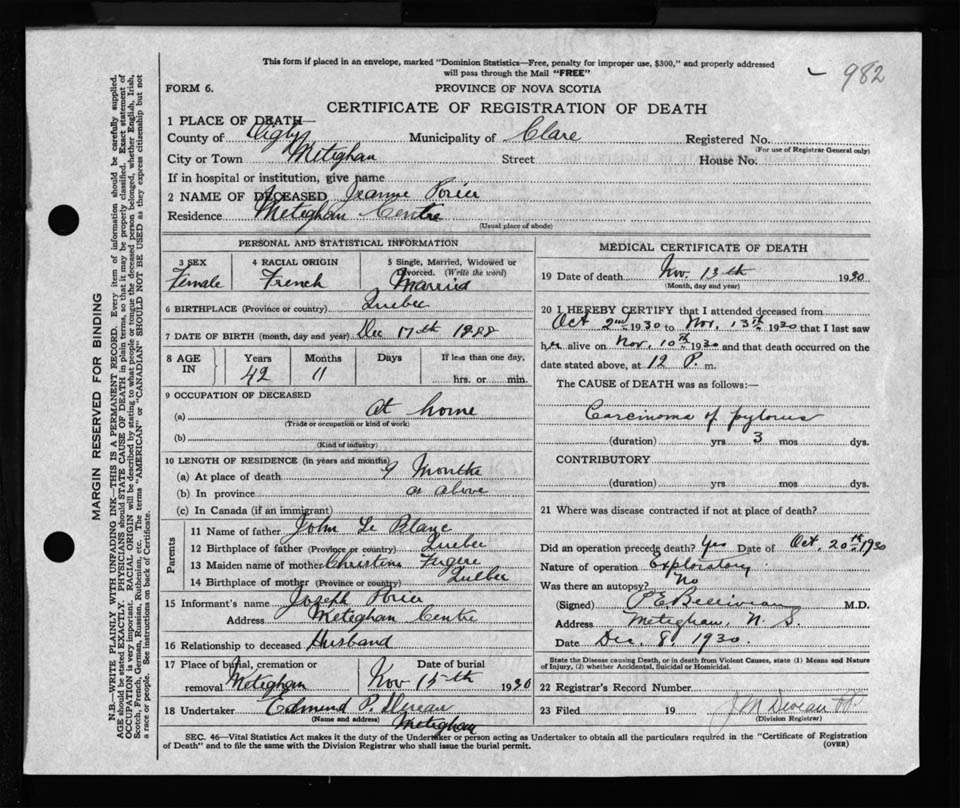 This form if placed in an envelope, marked "Dominion Statistics—Free, penalty for improper use, $300," and properly addressed
will pass through the Mail "FREE"
982
FORM 6.
PROVINCE OF NOVA SCOTIA
CERTIFICATE OF REGISTRATION OF DEATH
1 PLACE OF DEATH—
County of Digby Municipality of Clare Registered No.
(For use of Registrar General only)
City or Town Meteghan Street House No.
If in hospital or institution, give name
2 NAME OF DECEASED Jeanne Porier
Residence Meteghan Centre
(Usual place of abode)
MARGIN RESERVED FOR BINDING
N.B.—WRITE PLAINLY WITH UNFADING INK—THIS IS A PERMANENT RECORD. Every item of information should be carefully supplied.
AGE should be stated EXACTLY. PHYSICIANS should STATE CAUSE OF DEATH in plain terms, so that it may be properly classified. Exact statement of
OCCUPATION is very important. RACIAL ORIGIN will be described by stating to what people or tongue the deceased person belonged, whether English, Irish,
Scotch, French, German, Russian, Ruthenian, etc. The terms "AMERICAN" or "CANADIAN" SHOULD NOT BE USED as they express citizenship but not
a race or people. See instructions on back of Certificate.
PERSONAL AND STATISTICAL INFORMATION
3 SEX
Female
4 RACIAL ORIGIN
French
5 Single, Married, Widowed or
Divorced. (Write the word)
Married
6 BIRTHPLACE (Province or country) Quebec
7 DATE OF BIRTH (month, day and year) Dec 17th 1888
8 AGE IN
Years Months Days If less than one day,
42 11 hrs. or min.
9 OCCUPATION OF DECEASED
(a) At home
(Trade or occupation or kind of work)
(b)
(Kind of industry)
10 LENGTH OF RESIDENCE (in years and months)
(a) At place of death 9 Months
(b) In province as above
(c) In Canada (if an immigrant)
Parents
11 Name of father John Le Blanc
12 Birthplace of father (Province or country) Quebec
13 Maiden name of mother Christine
14 Birthplace of mother (Province or country) Quebec
15 Informant's name Joseph Porier
Address Meteghan Centre
16 Relationship to deceased Husband
17 Place of burial, cremation or Date of burial
removal Meteghan Nov 15th 1930
18 Undertaker Edmund P.
(Name and address) Meteghan
MEDICAL CERTIFICATE OF DEATH
19 Date of death Nov. 13th 1930
(Month, day and year)
20 I HEREBY CERTIFY that I attended deceased from
Oct 2nd 1930 to Nov. 13th 1930 that I last saw
her alive on Nov. 10th 1930 and that death occurred on the
date stated above, at 12 P. m.
The CAUSE of DEATH was as follows:—
Carcinoma of pylorus
(duration) yrs 3 mos dys.
CONTRIBUTORY
(duration) yrs mos dys.
21 Where was disease contracted if not at place of death?
Did an operation precede death? Yes Date of Oct. 20th 1930
Nature of operation Exploratory
Was there an autopsy? No
(Signed) P.E. Belliveau M.D.
Address Meteghan, N. S.
Date Dec. 8, 1930.
State the Disease causing Death, or in death from Violent Causes, state (1) Means and Nature
of Injury, (2) whether Accidental, Suicidal or Homicidal.
22 Registrar's Record Number
23 Filed 19 J M Deveau
(Division Registrar)
SEC. 46—Vital Statistics Act makes it the duty of the Undertaker or person acting as Undertaker to obtain all the particulars required in the "Certificate of Registration
of Death"—and to file the same with the Division Registrar who shall issue the burial permit.
(OVER)